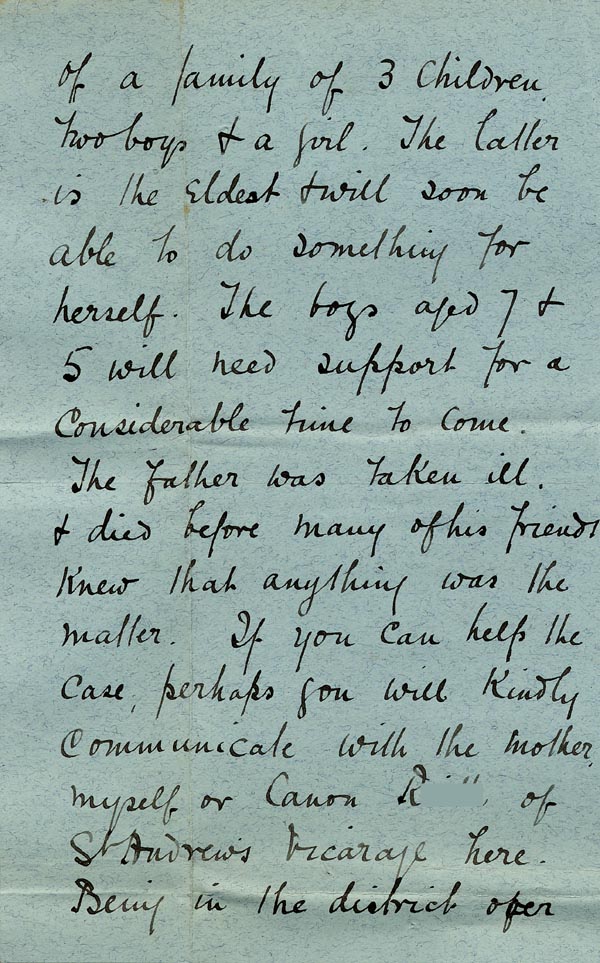 of a family of 3 Children,
two boys & a girl. The latter
is the Eldest & will soon be
able to do something for
herself. The boys aged 7 &
5 will need support for a
Considerable time to Come.
The father was taken ill.
& died before many of his friends
Knew that anything was the
matter. If you can help the
Case, perhaps you will Kindly
Communicate with the mother,
myself or Canon R of
St Andrew's Vicarage here.
Being in the district over